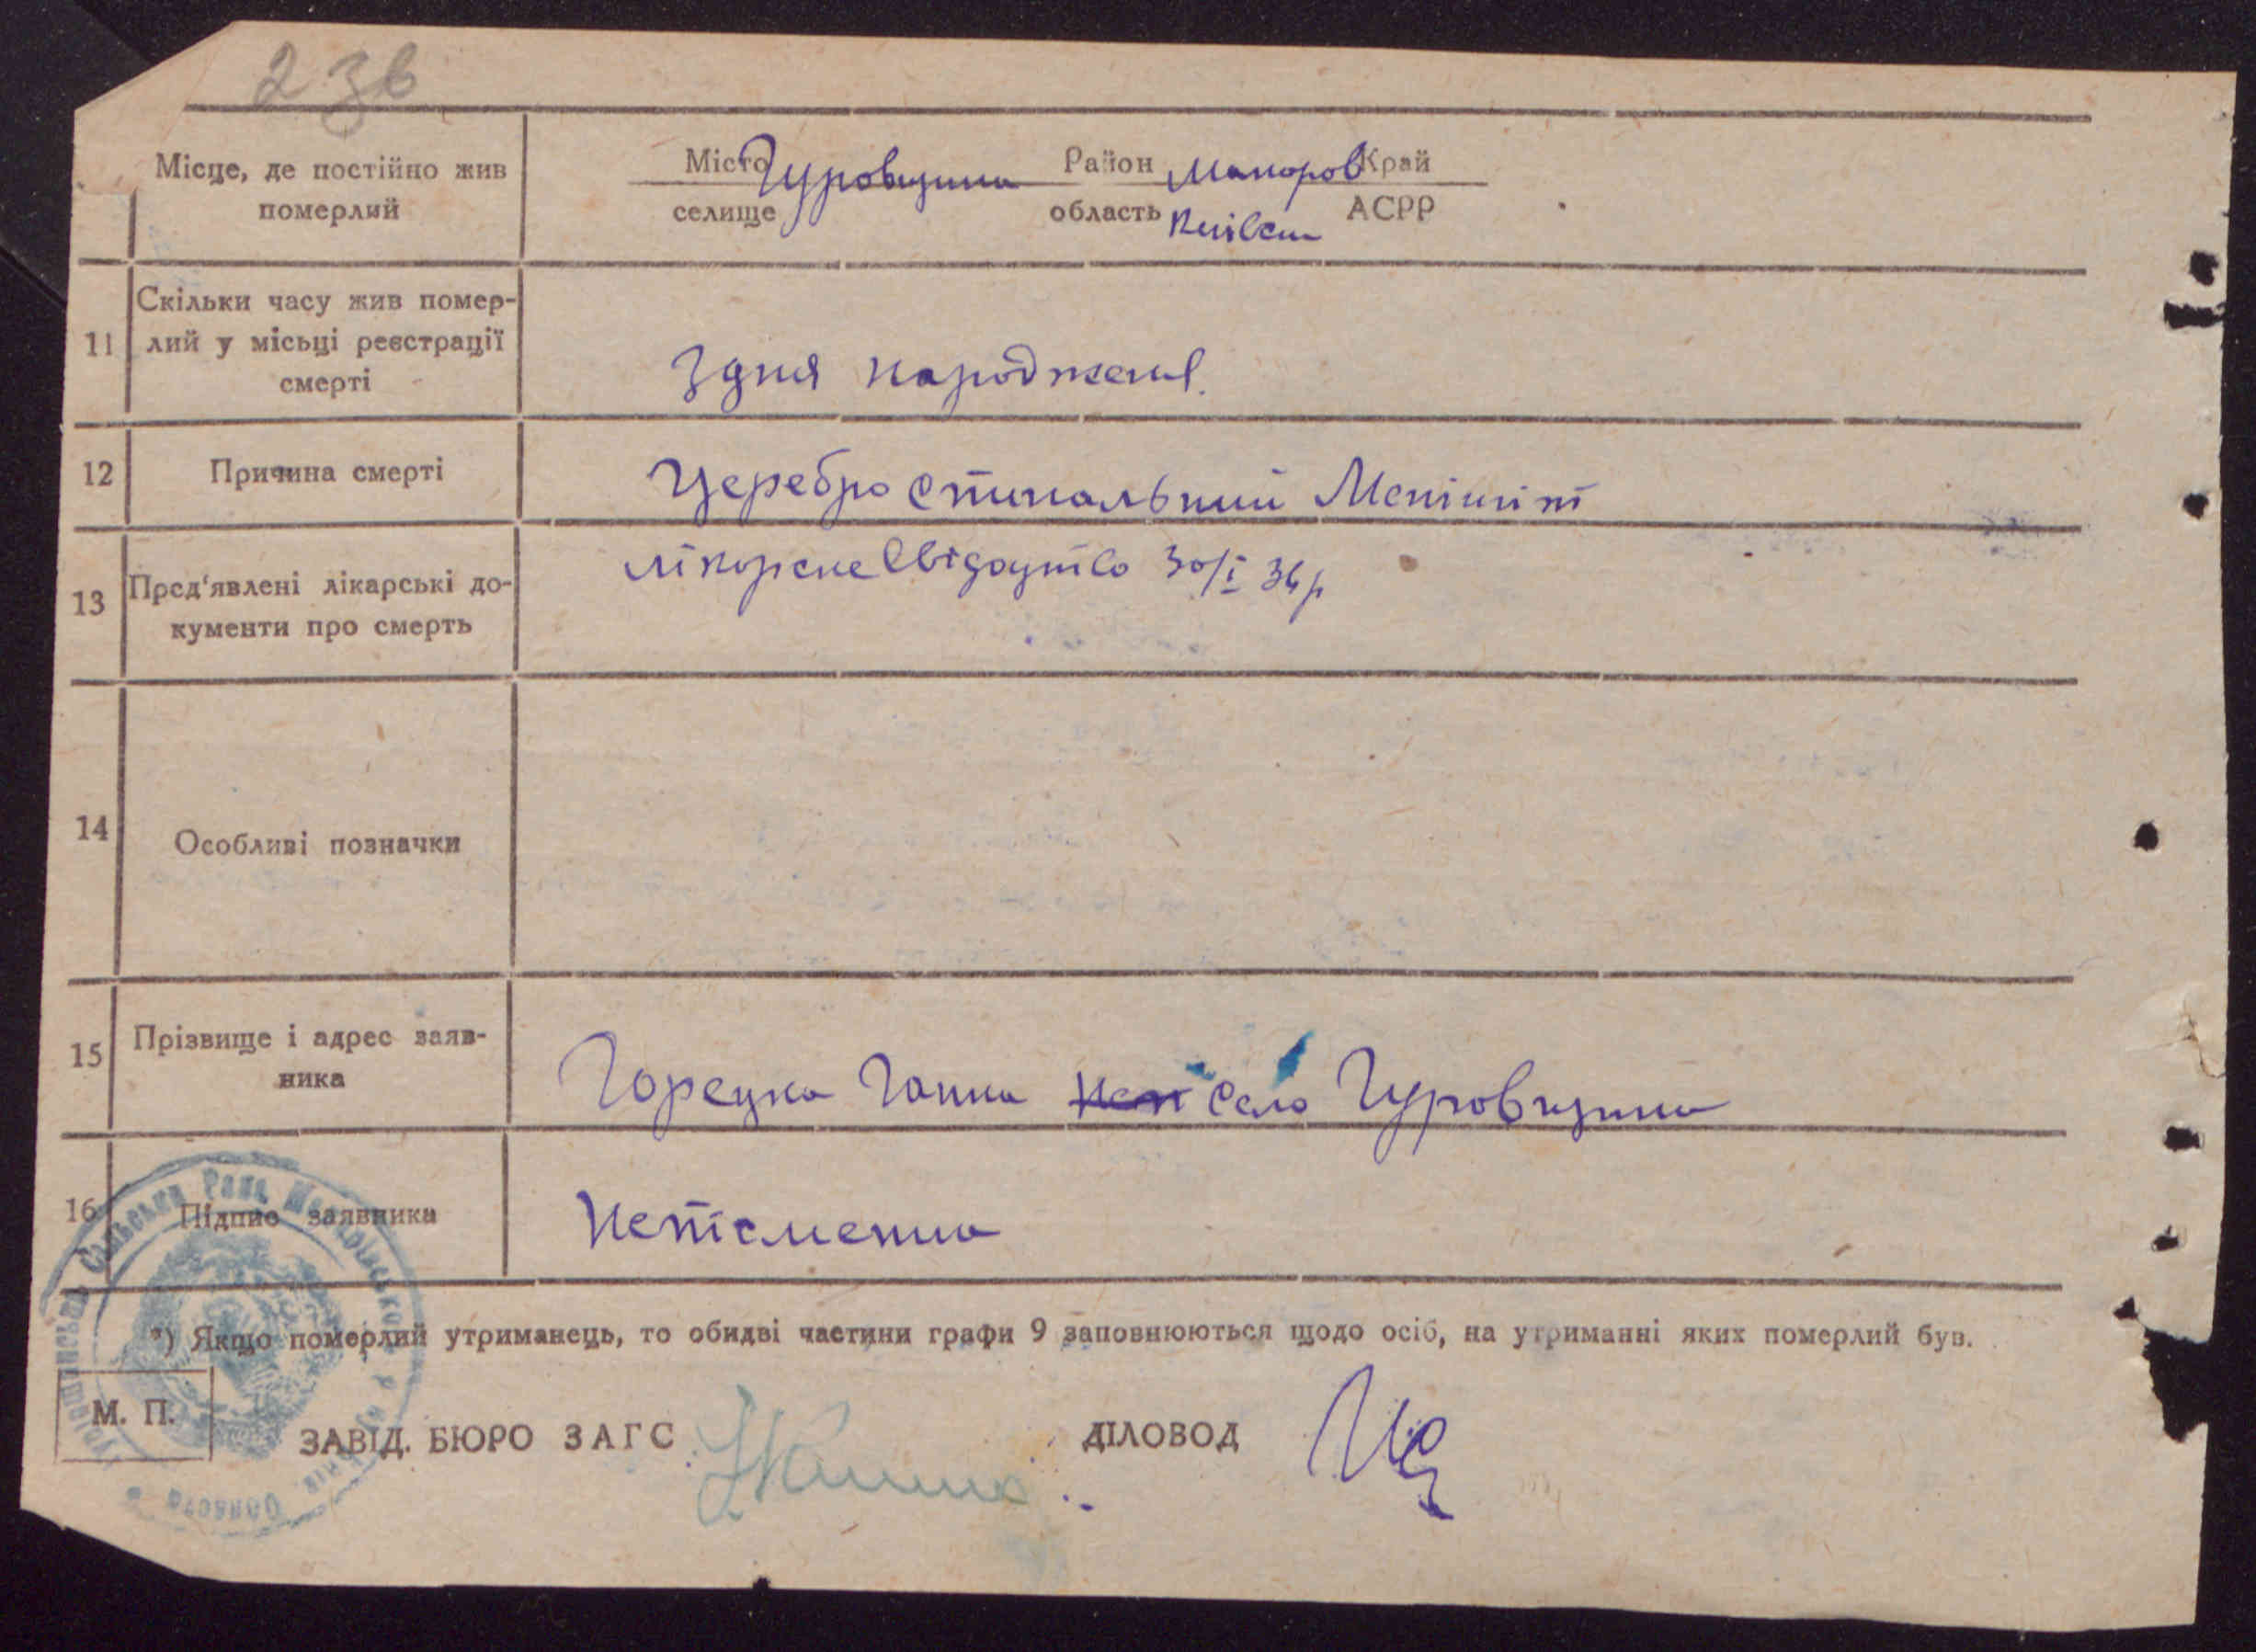 2 зв
Місце, де постійно жив
померлий
Місто Гуровщина Район Макоров Край
селище область Київськ АСРР
11 Скільки часу жив помер-
лий у місьці реєстрації
смерті
З дня народженя.
12 Причина смерті
Цереброспинальний Менінгіт
13 Пред'явлені лікарські до-
кументи про смерть
лікорске свідоцтво 30/I 36р
14 Особливі позначки
15 Прізвище і адрес заяв-
ника
Горецка Ганна село Гуровщина
16 Підпис заявника
Непісменна
*) Якщо померлий утриманець, то обидві частини графи 9 заповнюються щодо осіб, на утриманні яких померлий був.
М. П.
ЗАВІД. БЮРО ЗАГС
ДІЛОВОД
Сільська Рада
Область